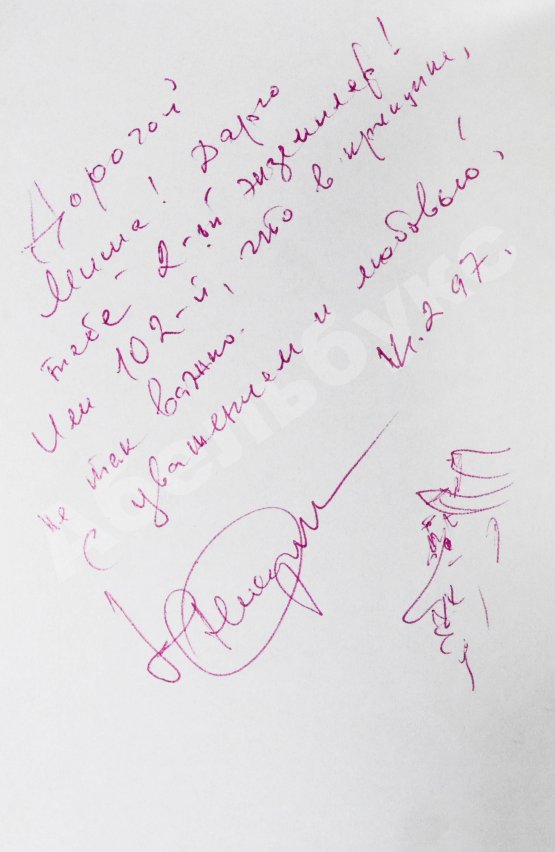 Дорогой
Миша! Дарю
тебе 2-ой экземпляр!
Или 102-й, что в принципе,
не так важно.
С уважением и любовью,
2 97.
Абельбукс